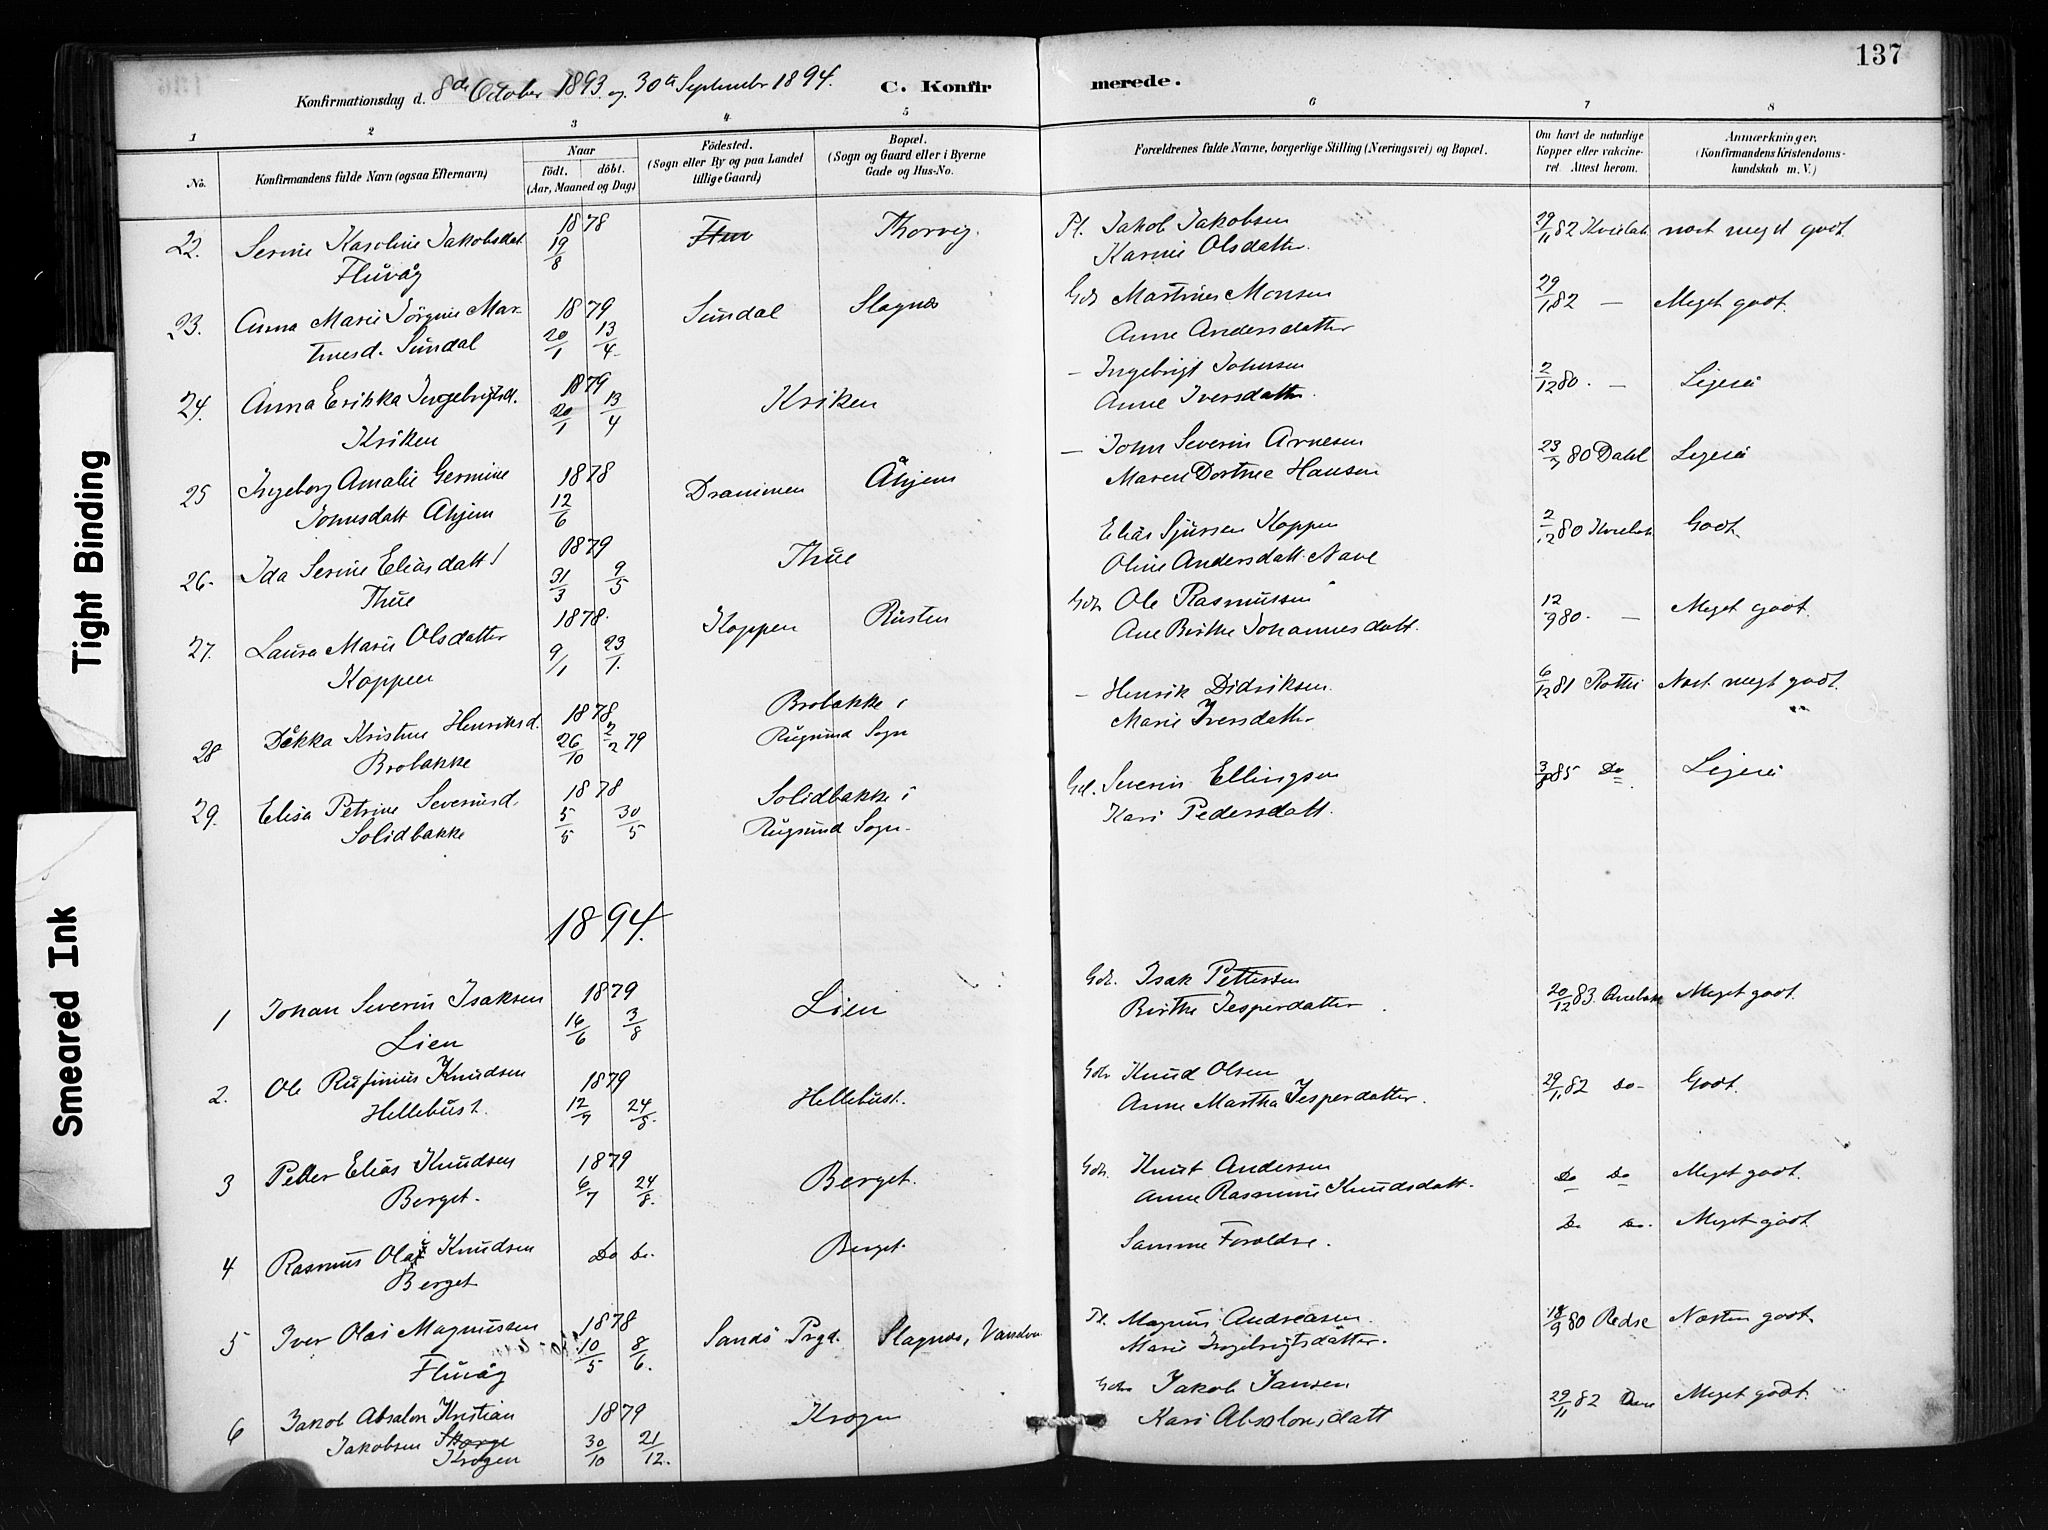 137
Konfirmationsdag d. 8de October 1893 og 30te September 1894. C. Konfirmerede.
1 2 3 4 5 6 7 8
No. Konfirmandens fulde Navn (ogsaa Efternavn) Naar født. døbt. (Aar, Maaned og Dag) Födested. (Sogn eller By og paa Landet tillige Gaard) Bopæl. (Sogn og Gaard eller i Byerne Gade og Hus-No. Forældrenes fulde Navne, borgerlige Stilling (Næringsvei) og Bopæl. Om havt de naturlige Kopper eller vakcineret. Attest herom. Anmærkninger, (Konfirmandens Kristendomskundskab m. V.)
22. Serine Karoline Jakobsdat 1878 Thorvig Pl. Jakob Jakobsen 29/11 82 nœst megd godt.
Fluvåg 19/8 Karine Olsdatter
23. Anna Marie Jörgine Mar- 1879 Sundal Slagnæs Gdr Martines Monsen 29/1 82 — Meget godt.
tinesd. Sundal 20/1 13/4 Anne Andersdatter
24. Anna Erikka Ingebrigtsd. 1879 Kriken — Ingebrigt Johnsen 2/12 80. — Ligeså
Kriken 20/1 13/4 Anne Iversdatter.
25 Ingeborg Amalie Germine 1878 Drammen Åhjem — John Severin Arnesen 23/7 80 Dahl Ligeså
Johnsdatt Ahjem 12/6 Maren Dortnee Hansen
26. Ida Serine Eliasdatt 1879 Thue Elias Sjursen Koppen 2/12 80 Godt.
Thue 31/3 9/5 Oline Andersdatt. Nave
27. Laura Marie Olsdatter 1878. Koppen Rusten Gdr Ole Rasmussen 12/9 80. — Meget godt.
Koppen 9/1 23/1. Ane Birthe Johannesdatt.
28 Dikka Kristine Henriksd. 1878 Brobakke i — Henrik Didriksen. 6/12 81 Rothi Nœst. megt godt.
Brobakke 26/10 2/2 79 Rugsund Sogn Marie Iversdatter
29. Elisa Petrine Severinsd. 1878 Solidbakke i Severin Ellingsen 85 Do. Ligeså
Solidbakke 5/5 30/5 Rugsund Sogn. Kari Pedersdatt.
1894.
1 Johan Severin Isaksen 1879 Lien Gdr. Isak Pettersen 20/12 83. Meget godt.
Lien 16/6 3/8 Birthe Jesperdatter.
2. Ole Rufinius Knudsen 1879 Hellebust. Gdr Knud Olsen 29/1 82 Do- Godt.
Hellebust. 12/7 24/8. Anne Martha Jesperdatter.
3 Petter Elias Knudsen 1879 Berget. Gdr. Knut Andersen Do Do Meget godt.
Berget. 6/7 24/8. Anne Rasmine Knudsdatt.
4 Rasmus Olai Knudsen Do Do. Berget. Samme Forœldre. Do Do. Meget godt.
Berget
5 Iver Olai Magnussen 1878 Sandö Prgd. Slagnœs, Pl. Magnus Andreasen 18/9 80 Redse Nœsten godt.
Fluvåg 10/5 8/6. Marie Ingebrigtsdatter.
6 Jakob Absalon Kristian 1879 Krogen Gdr Jakob Jansen 29/11 82 Meget godt.
Jakobsen 30/10 21/12. Kari Absalonsdatt
Krogen
Tight Binding
Smeared Ink